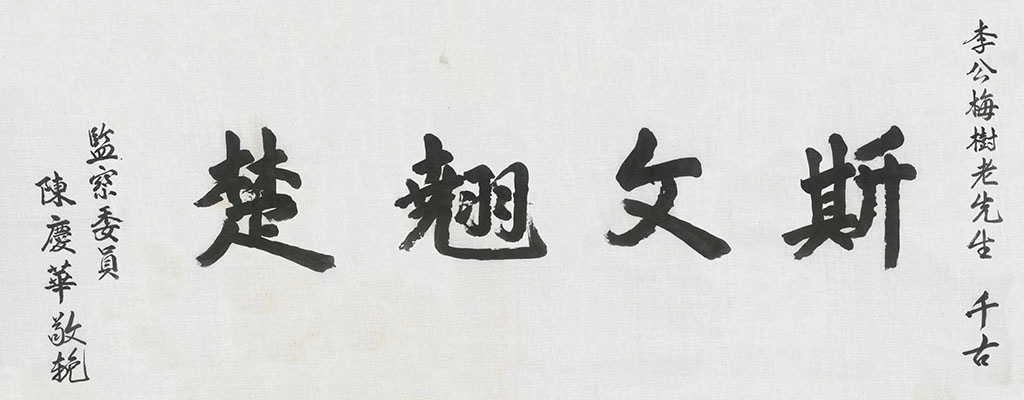 李公梅樹老先生 千古
斯文翹楚
監察委員
陳慶華敬輓